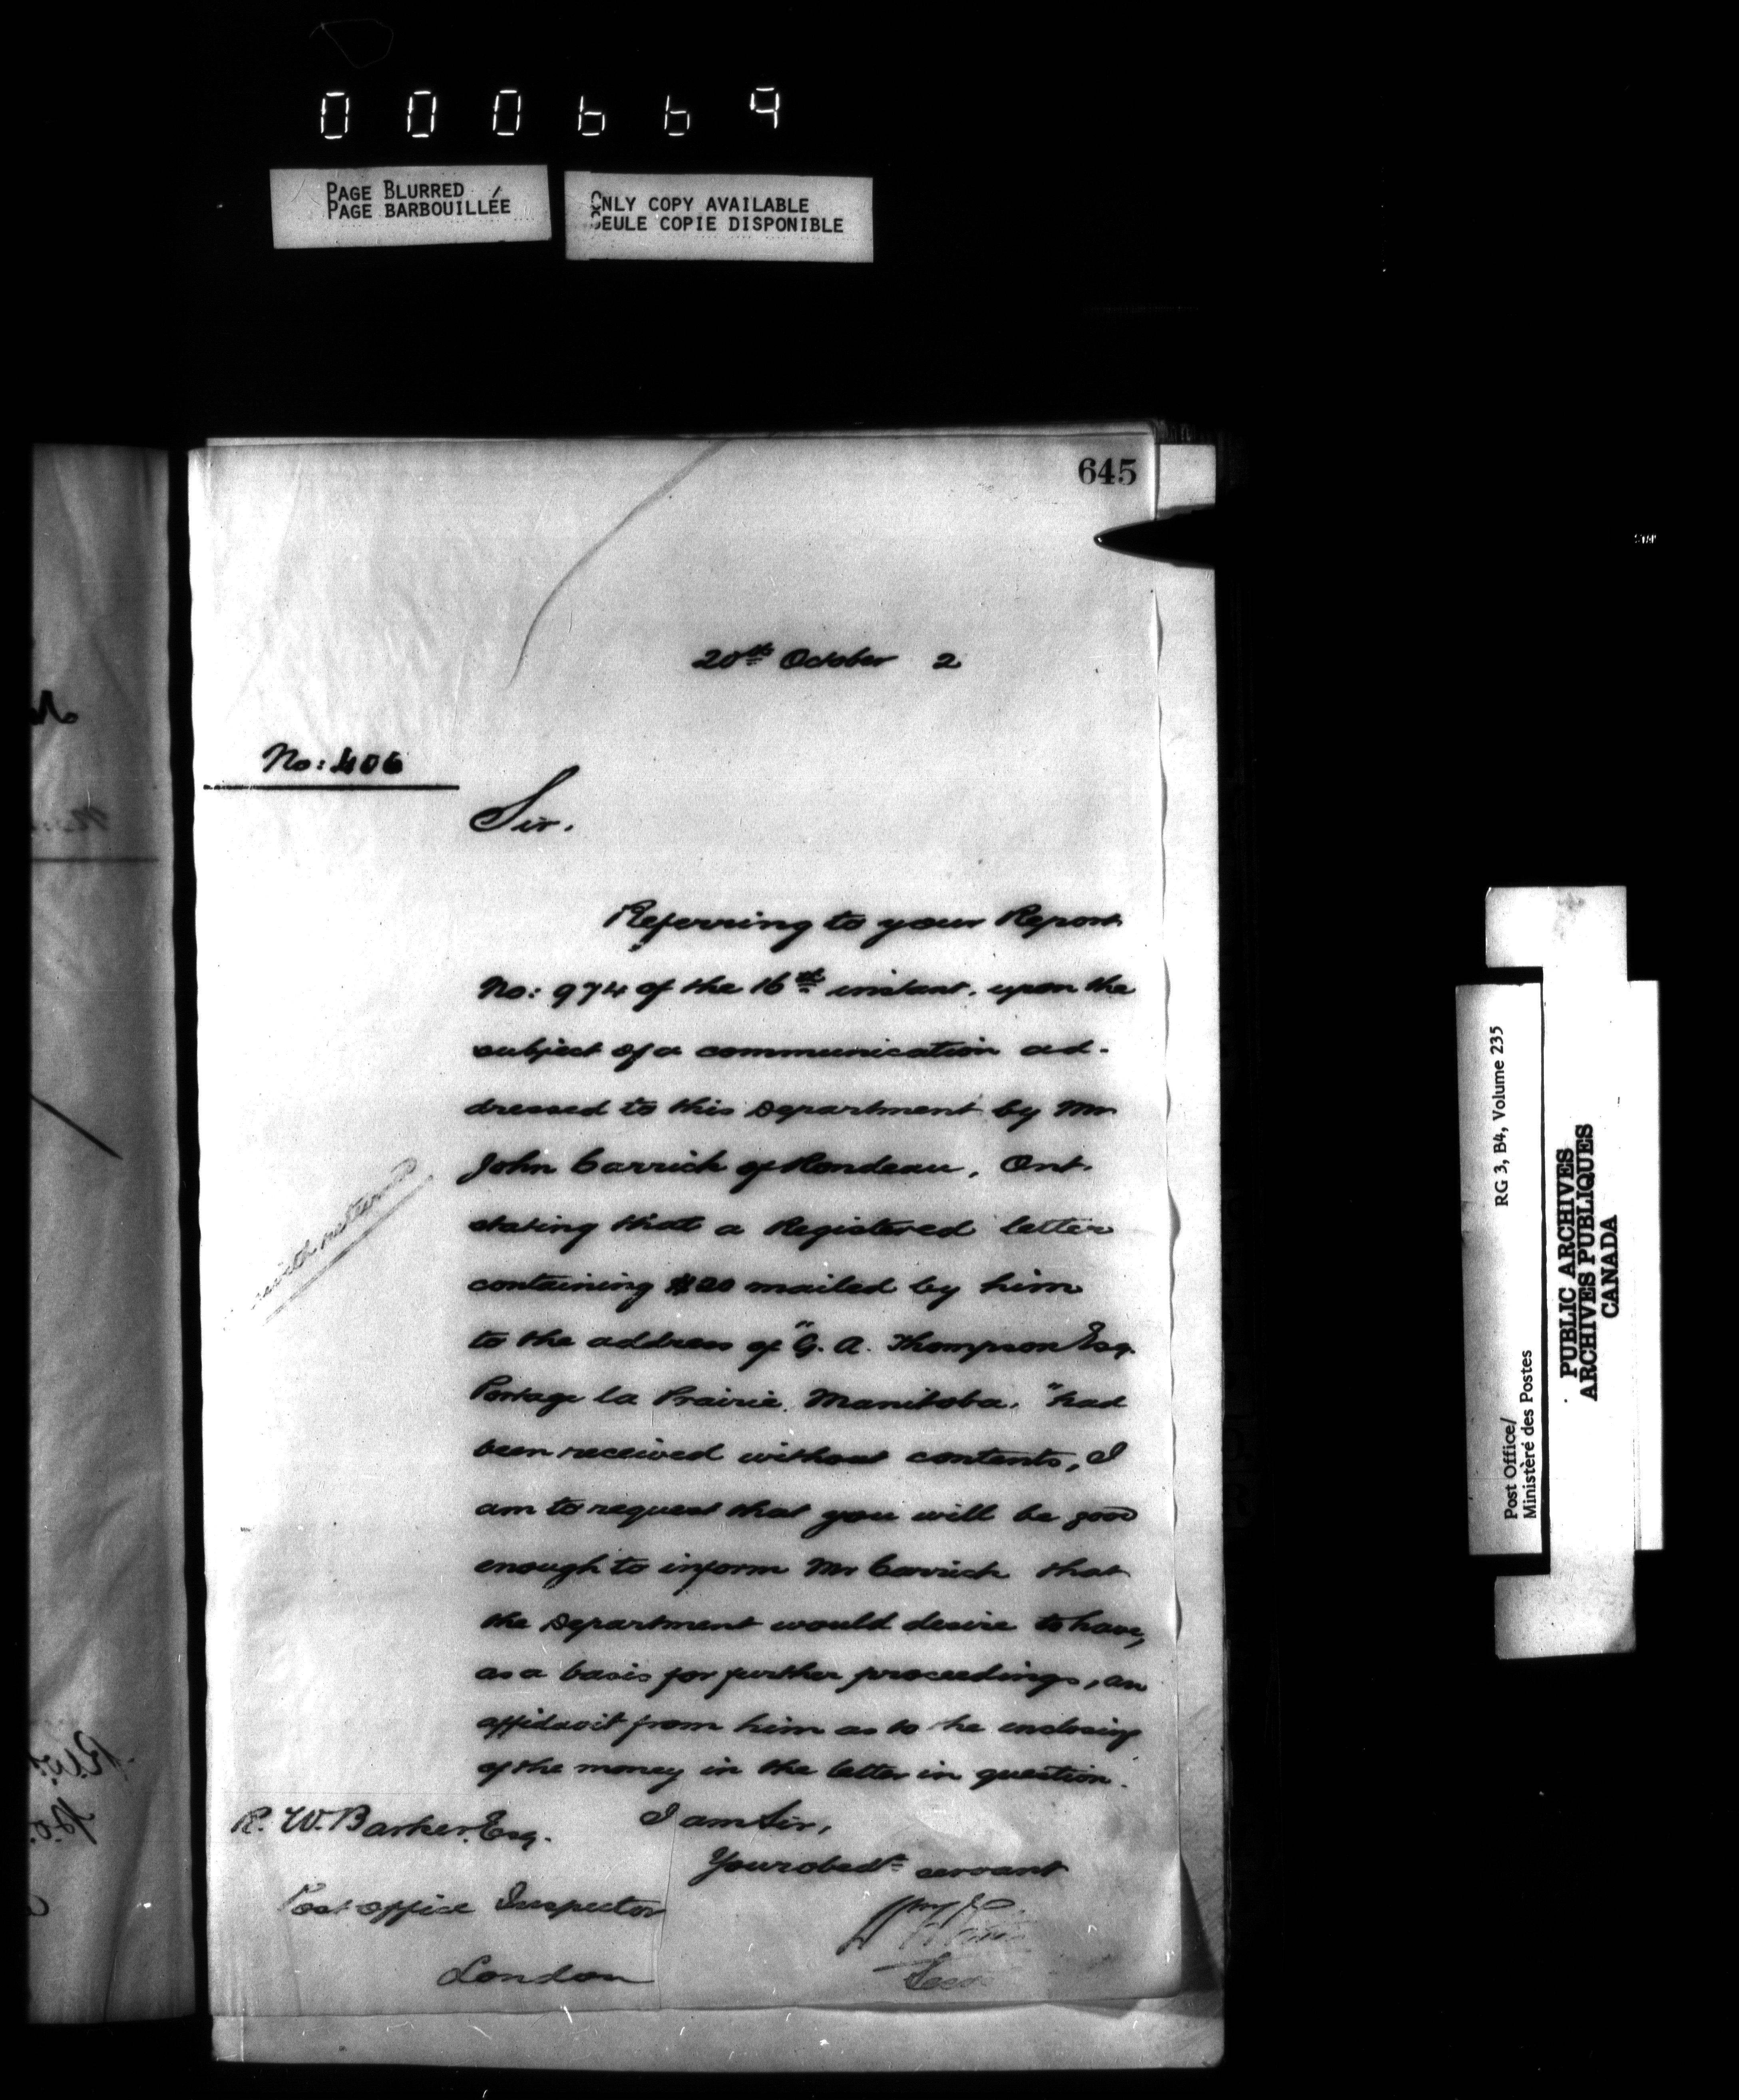 000669
PAGE BLURRED
PAGE BARBOUILLÉE
ONLY COPY AVAILABLE
SEULE COPIE DISPONIBLE
645
20th October 2
No: 406
Sir.
Referring to your Report
No: 974 of the 16th instant. upon the
subject of a communication ad-
dressed to this Department by Mr
John Carrick of Rondeau, Ont.
stating that a Registered letter
containing $20 mailed by him
to the address of "G. A. Thompson Esq.
Portage la Prairie. Manitoba," had
been received without contents, I
am to request that you will be good
enough to inform Mr Carrick that
the Department would desire to have,
as a basis for further proceedings, an
affidavit from him as to the enclosing
of the money in the letter in question.
I am Sir,
Your obedt servant
R. W. Barker. Esq.
Post office Inspector
London
RG 3, B4, Volume 235
Post Office/
Ministère des Postes
PUBLIC ARCHIVES
ARCHIVES PUBLIQUES
CANADA